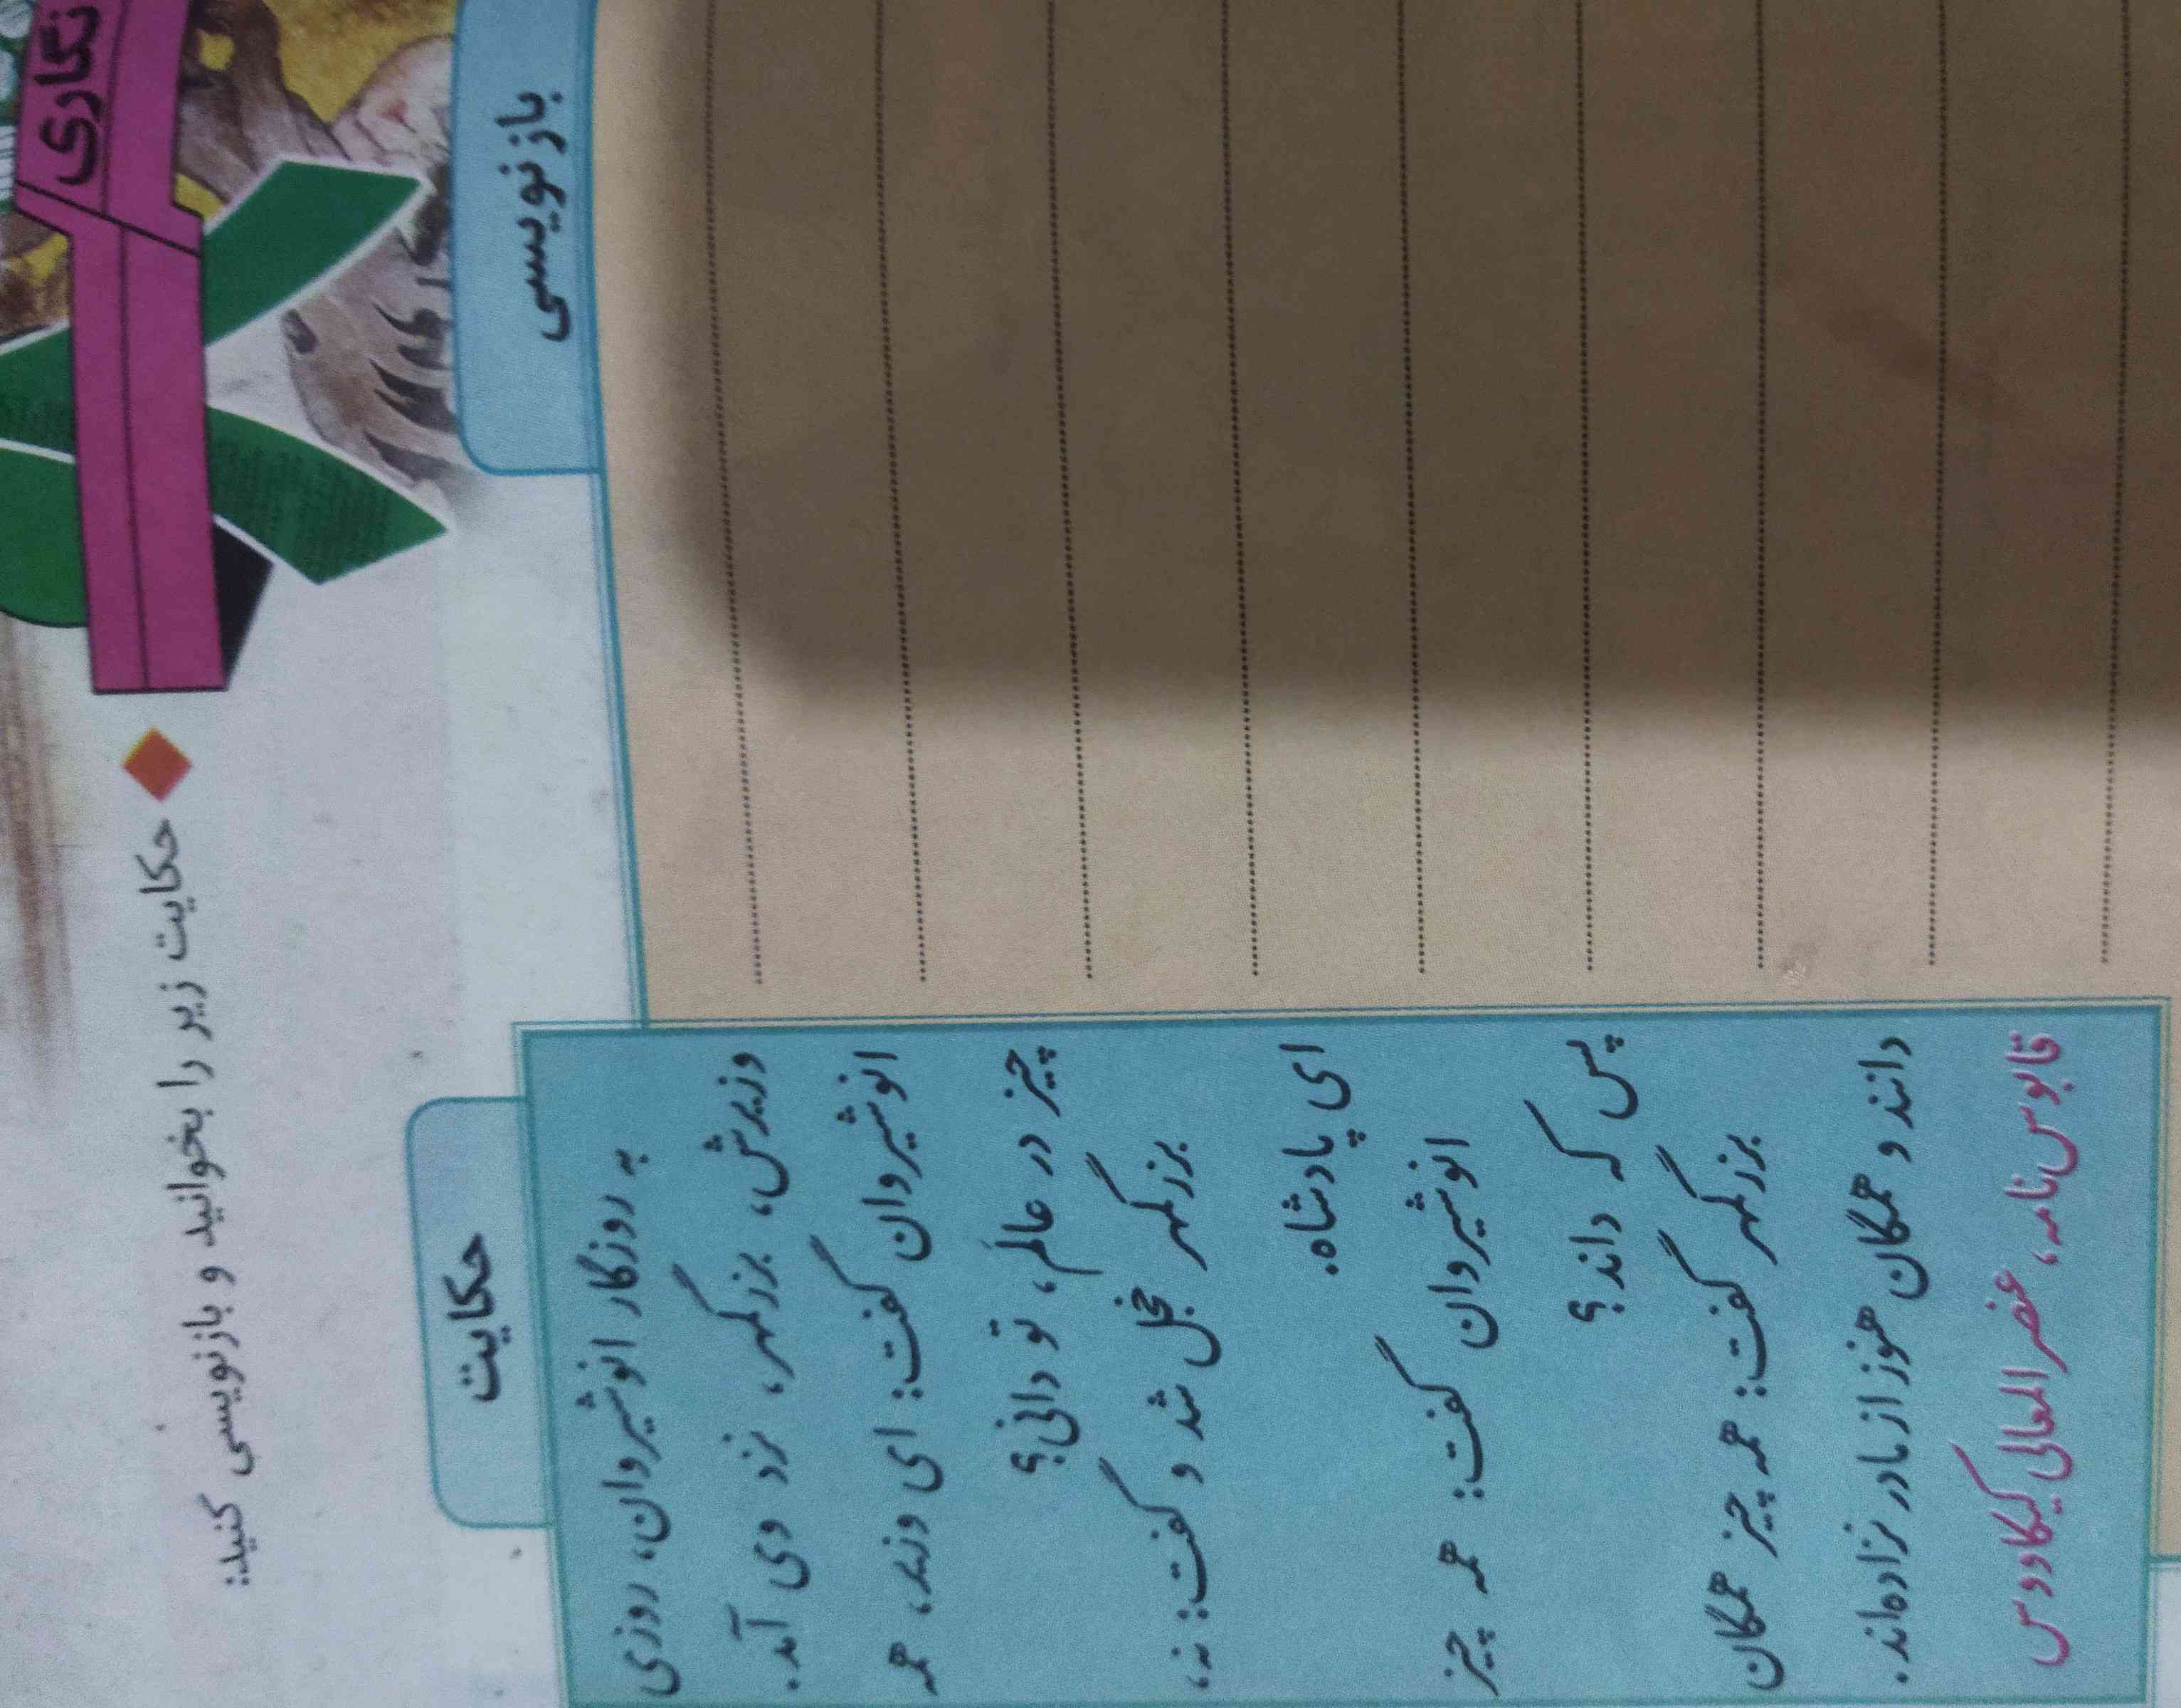 نگاری
حکایت زیر را بخوانید و بازنویسی کنید:
حکایت
به روزگار انوشیروان، روزی
وزیرش، بزرگمهر، نزد وی آمد.
انوشیروان گفت: ای وزیر، همه
چیز در عالَم، تو دانی؟
بزرگمهر خجل شد و گفت: نه،
ای پادشاه.
انوشیروان گفت: همه چیز
پس که داند؟
بزرگمهر گفت: همه چیز همگان
دانند و همگان هنوز از مادر نزاده‌اند.
قابوس‌نامه، عنصرالمعالی کیکاووس
بازنویسی